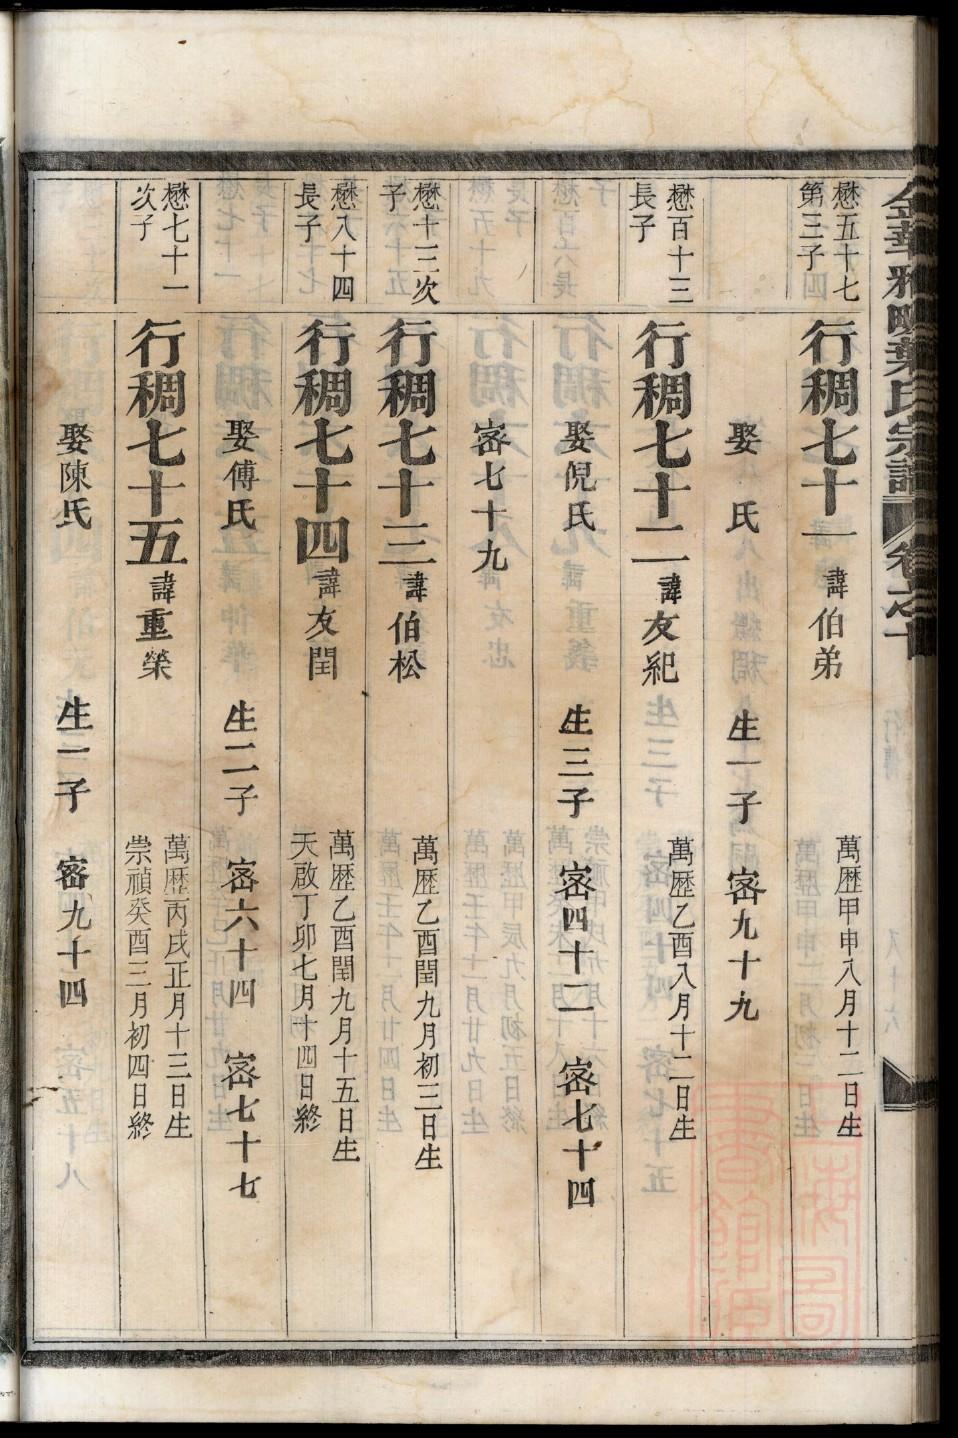 金華雅畈葉氏宗譜 卷之十
懋五十七
第三子
行稠七十一 諱伯弟 萬歷甲申八月十二日生
娶 氏 生一子 宻九十九
懋百十三
長子
行稠七十二 諱友紀 萬歷乙酉八月十二日生
娶倪氏 生三子 宻四十二 宻七十四
宻七十九
懋十三次
子
行稠七十三 諱伯松 萬歷乙酉閏九月初三日生
懋八十四
長子
行稠七十四 諱友閏 萬歷乙酉閏九月十五日生
天啟丁卯七月十四日終
娶傅氏 生二子 宻六十四 宻七十七
懋七十一
次子
行稠七十五 諱重榮 萬歷丙戌正月十三日生
崇禎癸酉三月初四日終
娶陳氏 生一子 宻九十四